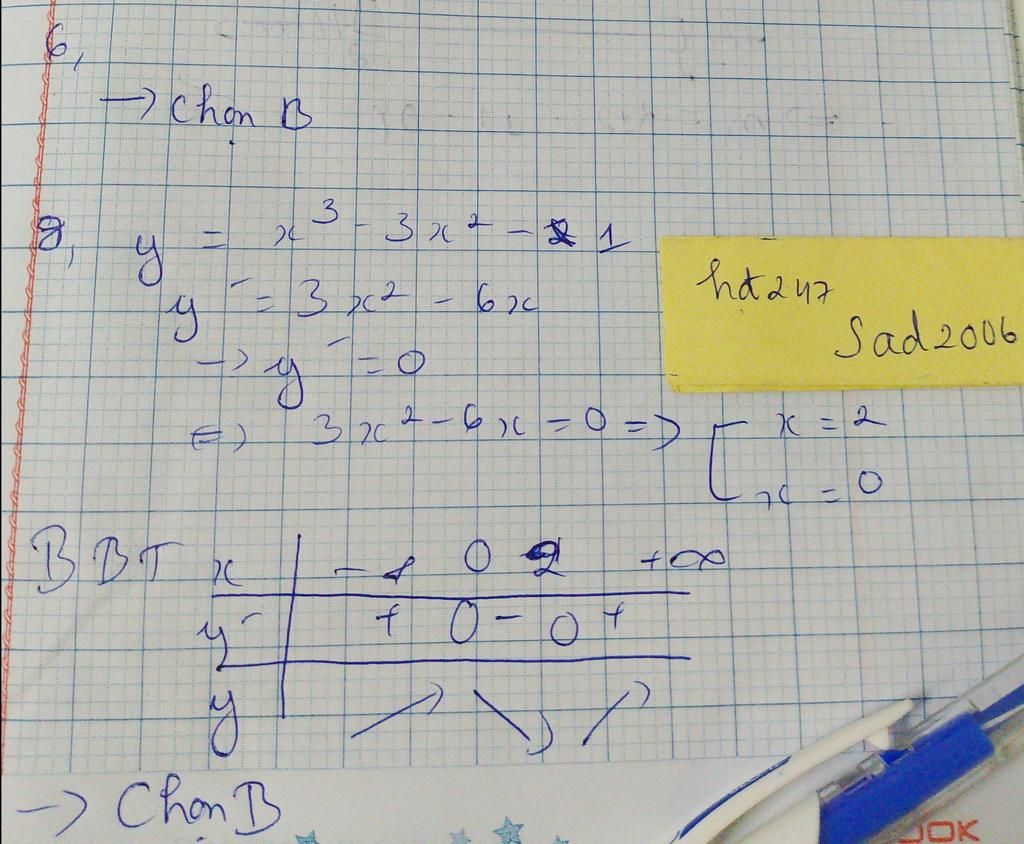 6,
→ Chọn B
8, y = x³ - 3x² - 1
y' = 3x² - 6x
→ y' = 0
⇔ 3x² - 6x = 0 => [ x = 2
x = 0
hdt247
Sad2006
BBT x | -∞ 0 2 +∞
y' | + 0 - 0 +
y | ↗ ↘ ↗
→ Chọn B
OK